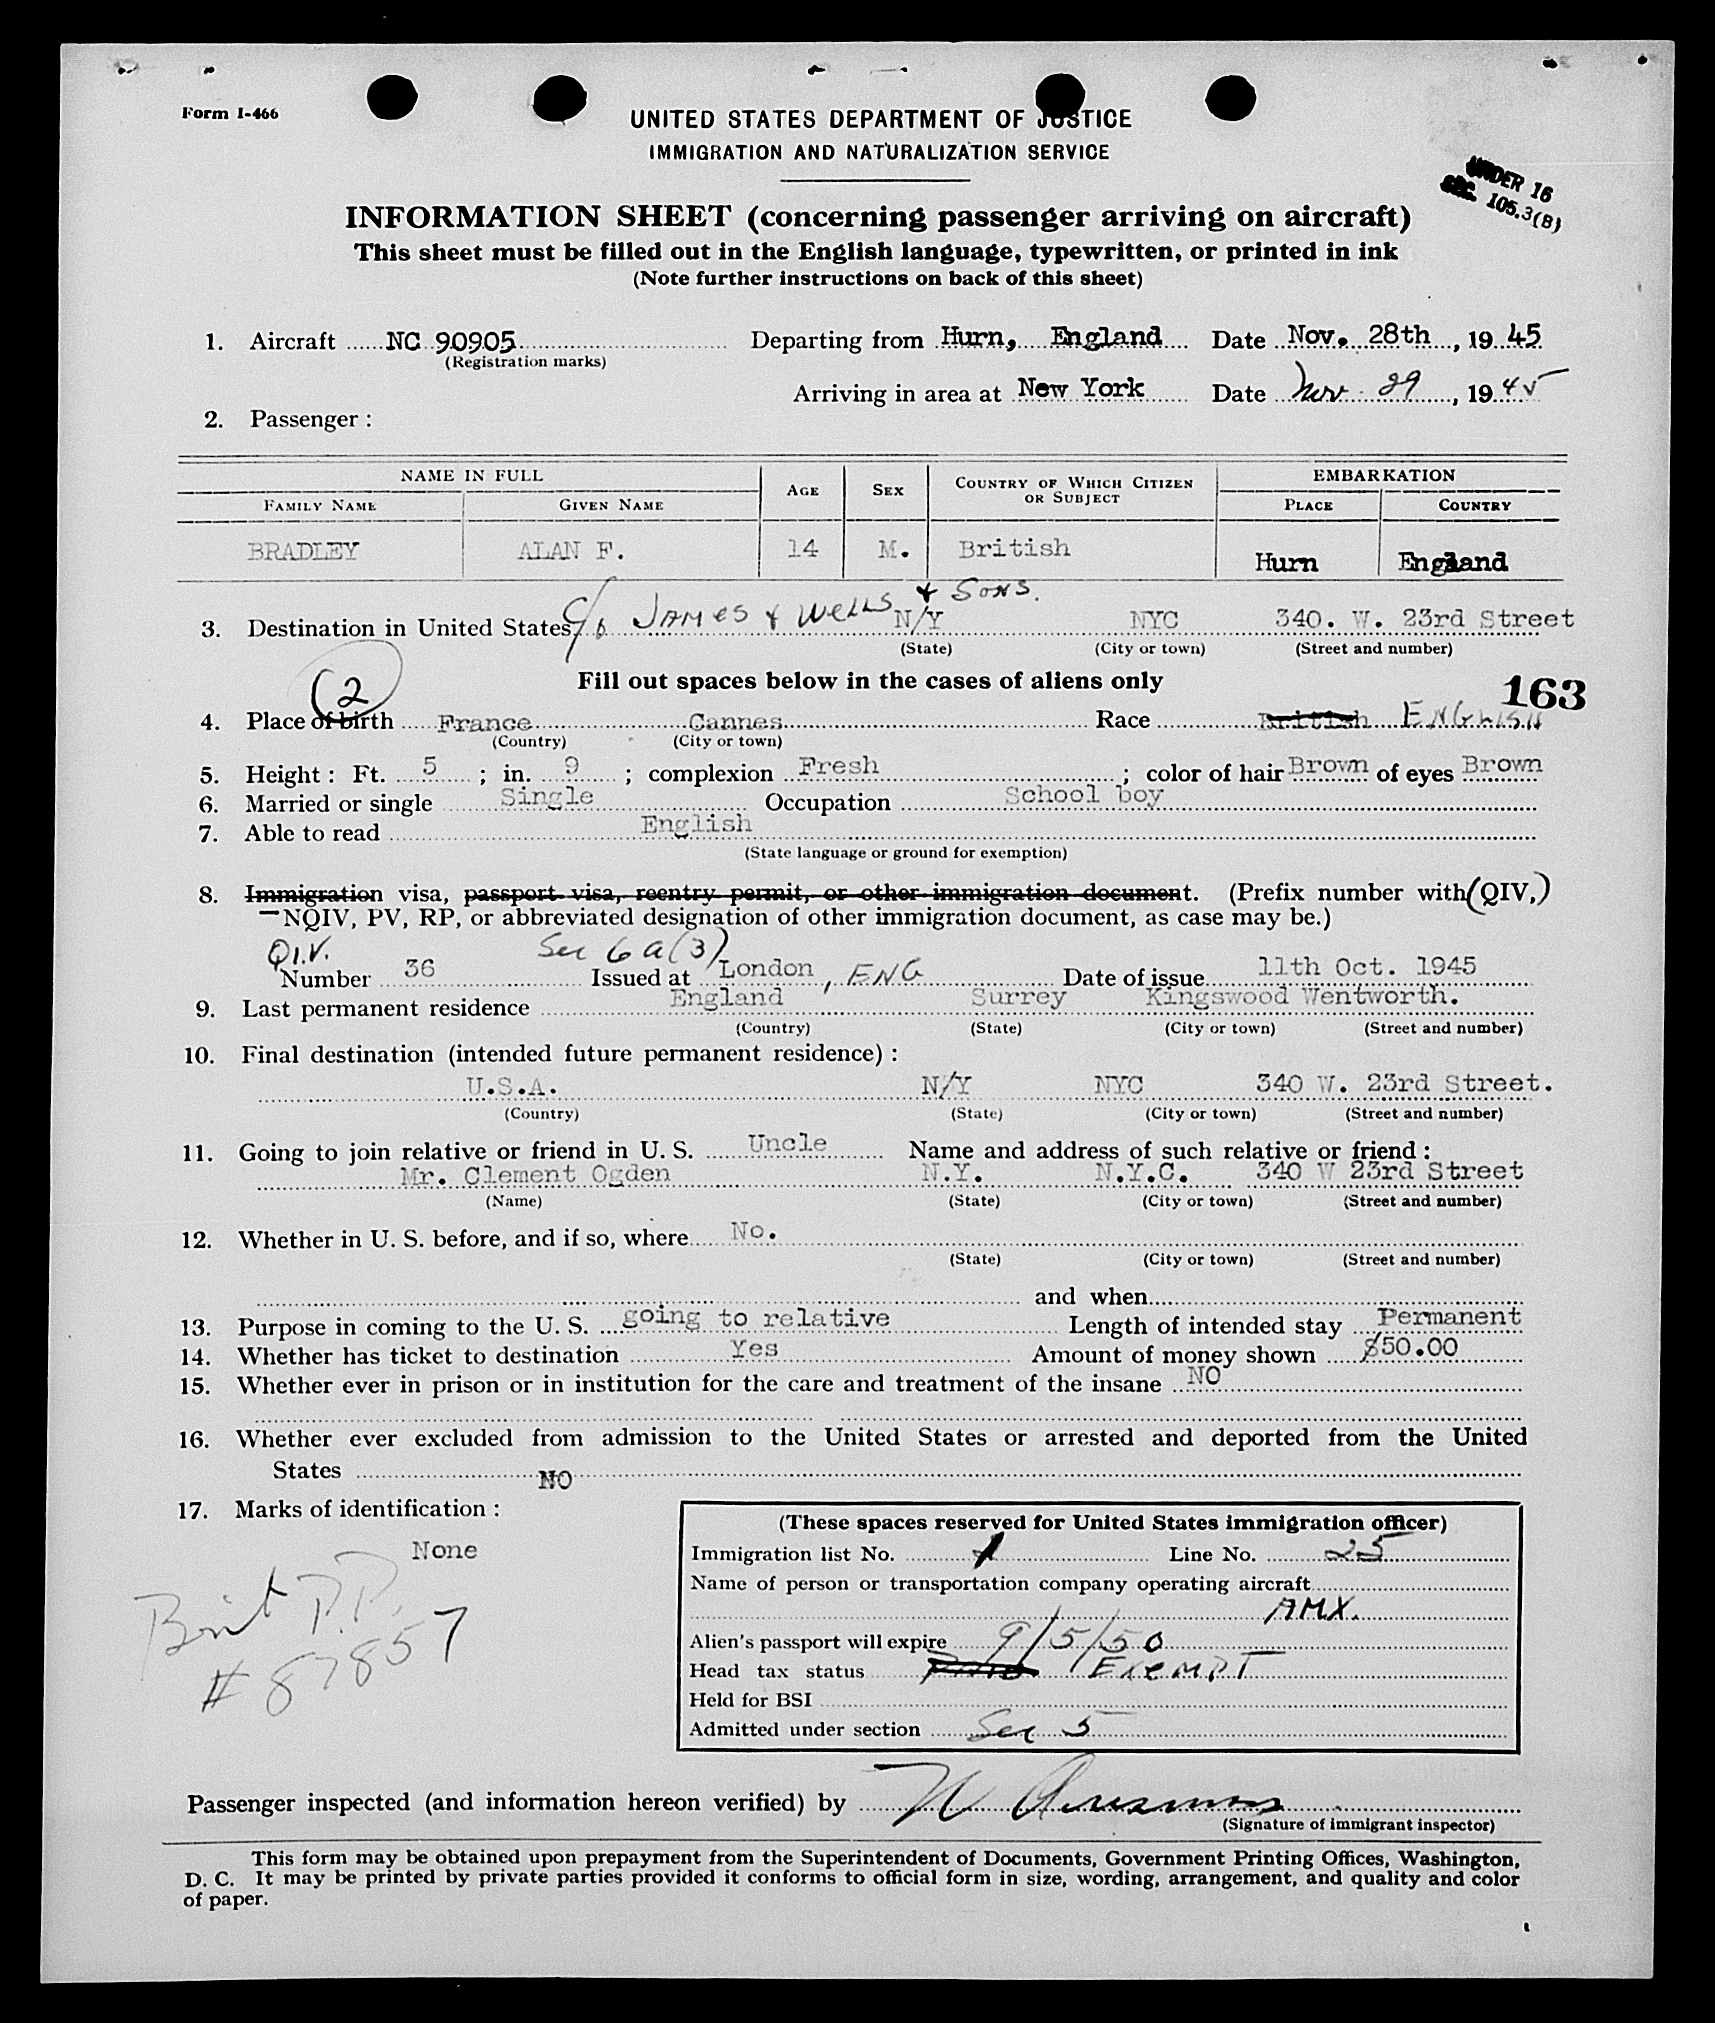 Form I-466
UNITED STATES DEPARTMENT OF JUSTICE
IMMIGRATION AND NATURALIZATION SERVICE
UNDER 16
SEC. 105.3(B)
INFORMATION SHEET (concerning passenger arriving on aircraft)
This sheet must be filled out in the English language, typewritten, or printed in ink
(Note further instructions on back of this sheet)
1. Aircraft NC 90905 Departing from Hurn, England Date Nov. 28th, 19 45
(Registration marks)
Arriving in area at New York Date Nov 29, 19 45
2. Passenger :
NAME IN FULL AGE SEX COUNTRY OF WHICH CITIZEN OR SUBJECT EMBARKATION
FAMILY NAME GIVEN NAME PLACE COUNTRY
BRADLEY ALAN F. 14 M. British Hurn England
c/o JAMES & WELLS & SONS.
3. Destination in United States N/Y NYC 340. W. 23rd Street
(State) (City or town) (Street and number)
(2 Fill out spaces below in the cases of aliens only 163
4. Place of birth France Cannes Race British ENGLISH
(Country) (City or town)
5. Height : Ft. 5 ; in. 9 ; complexion Fresh ; color of hair Brown of eyes Brown
6. Married or single Single Occupation School boy
7. Able to read English
(State language or ground for exemption)
8. Immigration visa, passport visa, reentry permit, or other immigration document. (Prefix number with (QIV,)
NQIV, PV, RP, or abbreviated designation of other immigration document, as case may be.)
Q.I.V. Sec 6 a (3)
Number 36 Issued at London, ENG Date of issue 11th Oct. 1945
9. Last permanent residence England Surrey Kingswood Wentworth.
(Country) (State) (City or town) (Street and number)
10. Final destination (intended future permanent residence) :
U.S.A. N/Y NYC 340 W. 23rd Street.
(Country) (State) (City or town) (Street and number)
11. Going to join relative or friend in U. S. Uncle Name and address of such relative or friend :
Mr. Clement Ogden N.Y. N.Y.C. 340 W 23rd Street
(Name) (State) (City or town) (Street and number)
12. Whether in U. S. before, and if so, where No.
(State) (City or town) (Street and number)
and when
13. Purpose in coming to the U. S. going to relative Length of intended stay Permanent
14. Whether has ticket to destination Yes Amount of money shown $50.00
15. Whether ever in prison or in institution for the care and treatment of the insane NO
16. Whether ever excluded from admission to the United States or arrested and deported from the United
States NO
17. Marks of identification :
None
Brit P.P.
# 87857
(These spaces reserved for United States immigration officer)
Immigration list No. 1 Line No. 25
Name of person or transportation company operating aircraft
AMX.
Alien's passport will expire 9/5/50
Head tax status EXEMPT
Held for BSI
Admitted under section Sec 5
Passenger inspected (and information hereon verified) by
(Signature of immigrant inspector)
This form may be obtained upon prepayment from the Superintendent of Documents, Government Printing Offices, Washington,
D. C. It may be printed by private parties provided it conforms to official form in size, wording, arrangement, and quality and color
of paper.